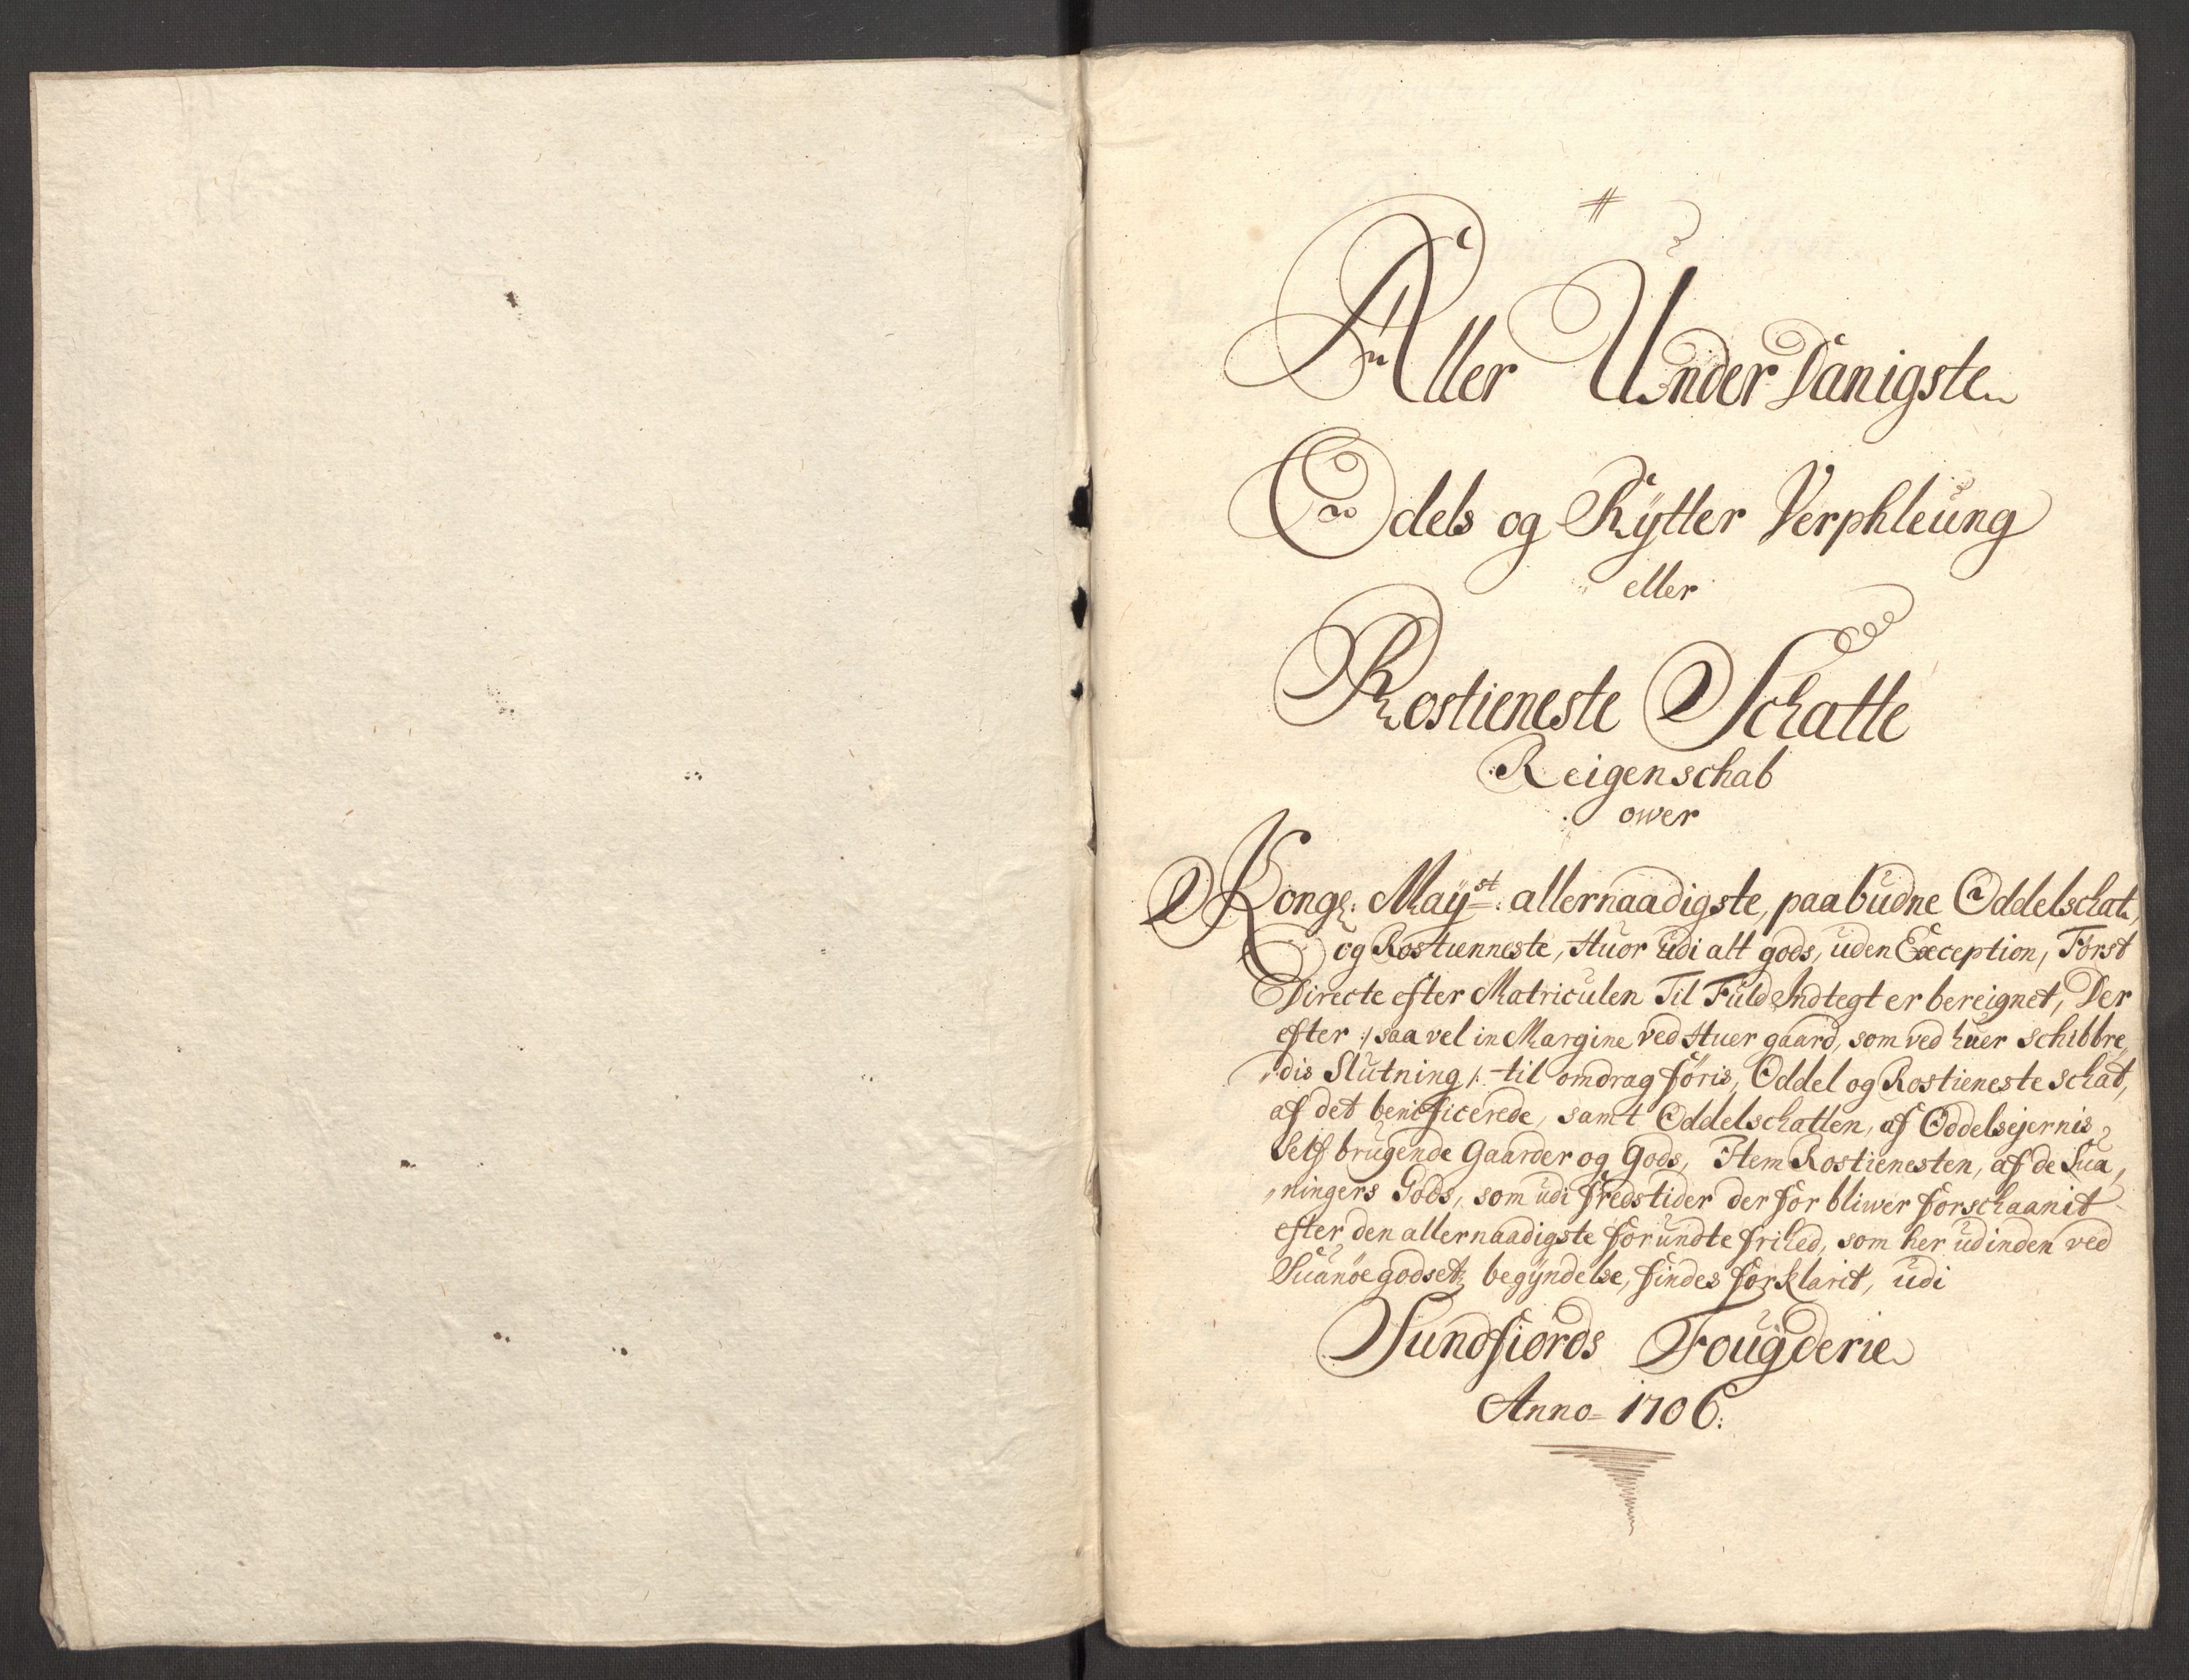 #
Aller Underdanigste
Odels og Rÿtter Verphleung
eller
Rostieneste Schatte
Reigenschab
ower
Kongl: Maÿst: allernaadigste, paabudne Oddelschat,
og Rostienneste, Huor udi alt gods, uden Exception, Först
Directe efter Matriculen Til Fuld Indtegt er bereignet, Der
efter :/ saa vel in Margine ved Huer gaard, som ved huer schibbre,
,dis Slutning /: til omdrag föris, Oddel og Rostieneste schat,
af det benificerede, samt Oddelschatten, af Oddelsejernis
Self brugende Gaarder og Gods, Item Rostienesten, af de Sua,
,ningers Gods, som udi fredstider der for bliwer forschaanit
efter den allernaadigste forundte frihed, som her udinden ved
Suanöegodsetz begÿndelse, findes forklarit, udi
Sundfiords Fougderie
Anno= 1706: